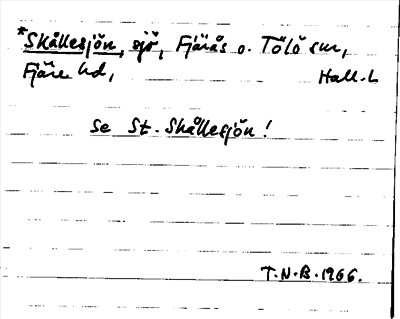 *Skållesjön, sjö, Fjärås o. Tölö snr,
Fjäre hd, Hall. l.
se St. Skållesjön!
T.N.B. 1966.